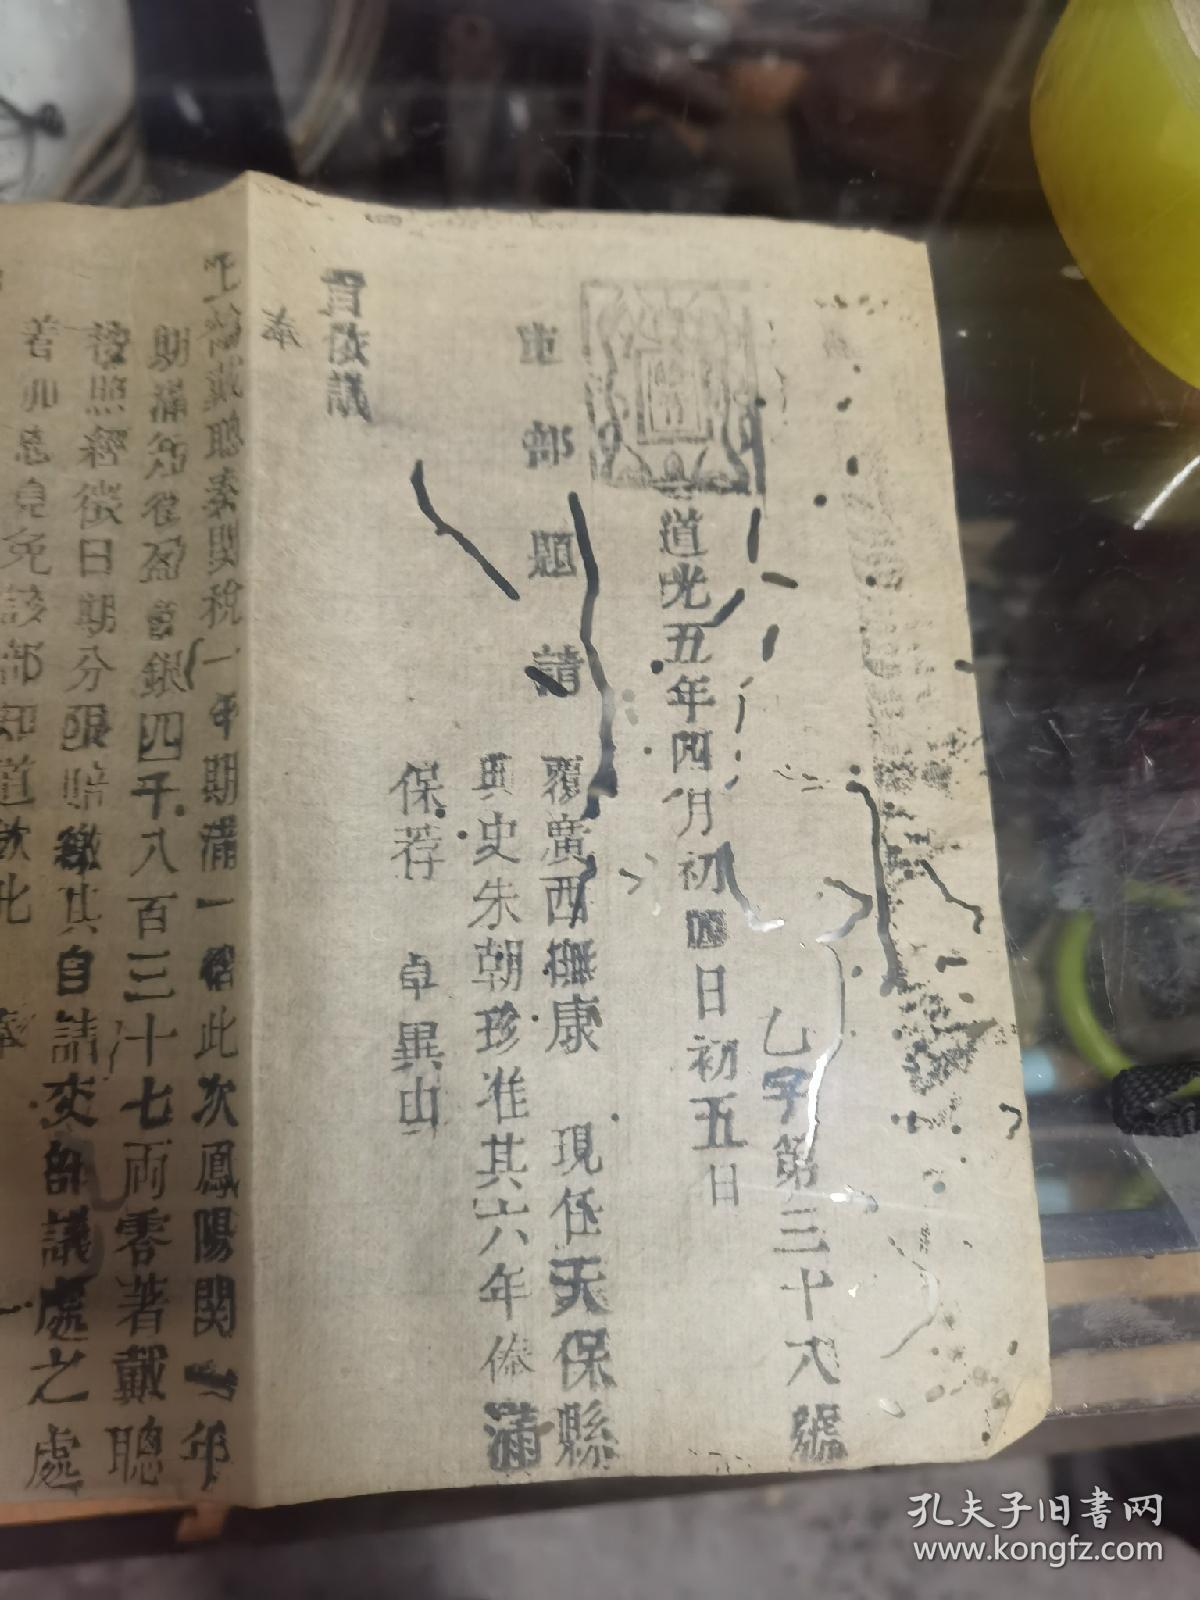 乙字第三十八號
道光五年四月初四日初五日
部題請
覆廣西撫康 現任天保縣
典史朱朝珍准其六年俸滿
保荐 卓異山
旨依議
奉
上諭戴聰奏関稅一年期滿一摺此次鳳陽関一年
期滿盈餘銀四千八百三十七両零著戴聰
按照經徵日期分賠繳其自請交部議處之處
著加恩免該部知道欽此
孔夫子旧書网
www.kongfz.com